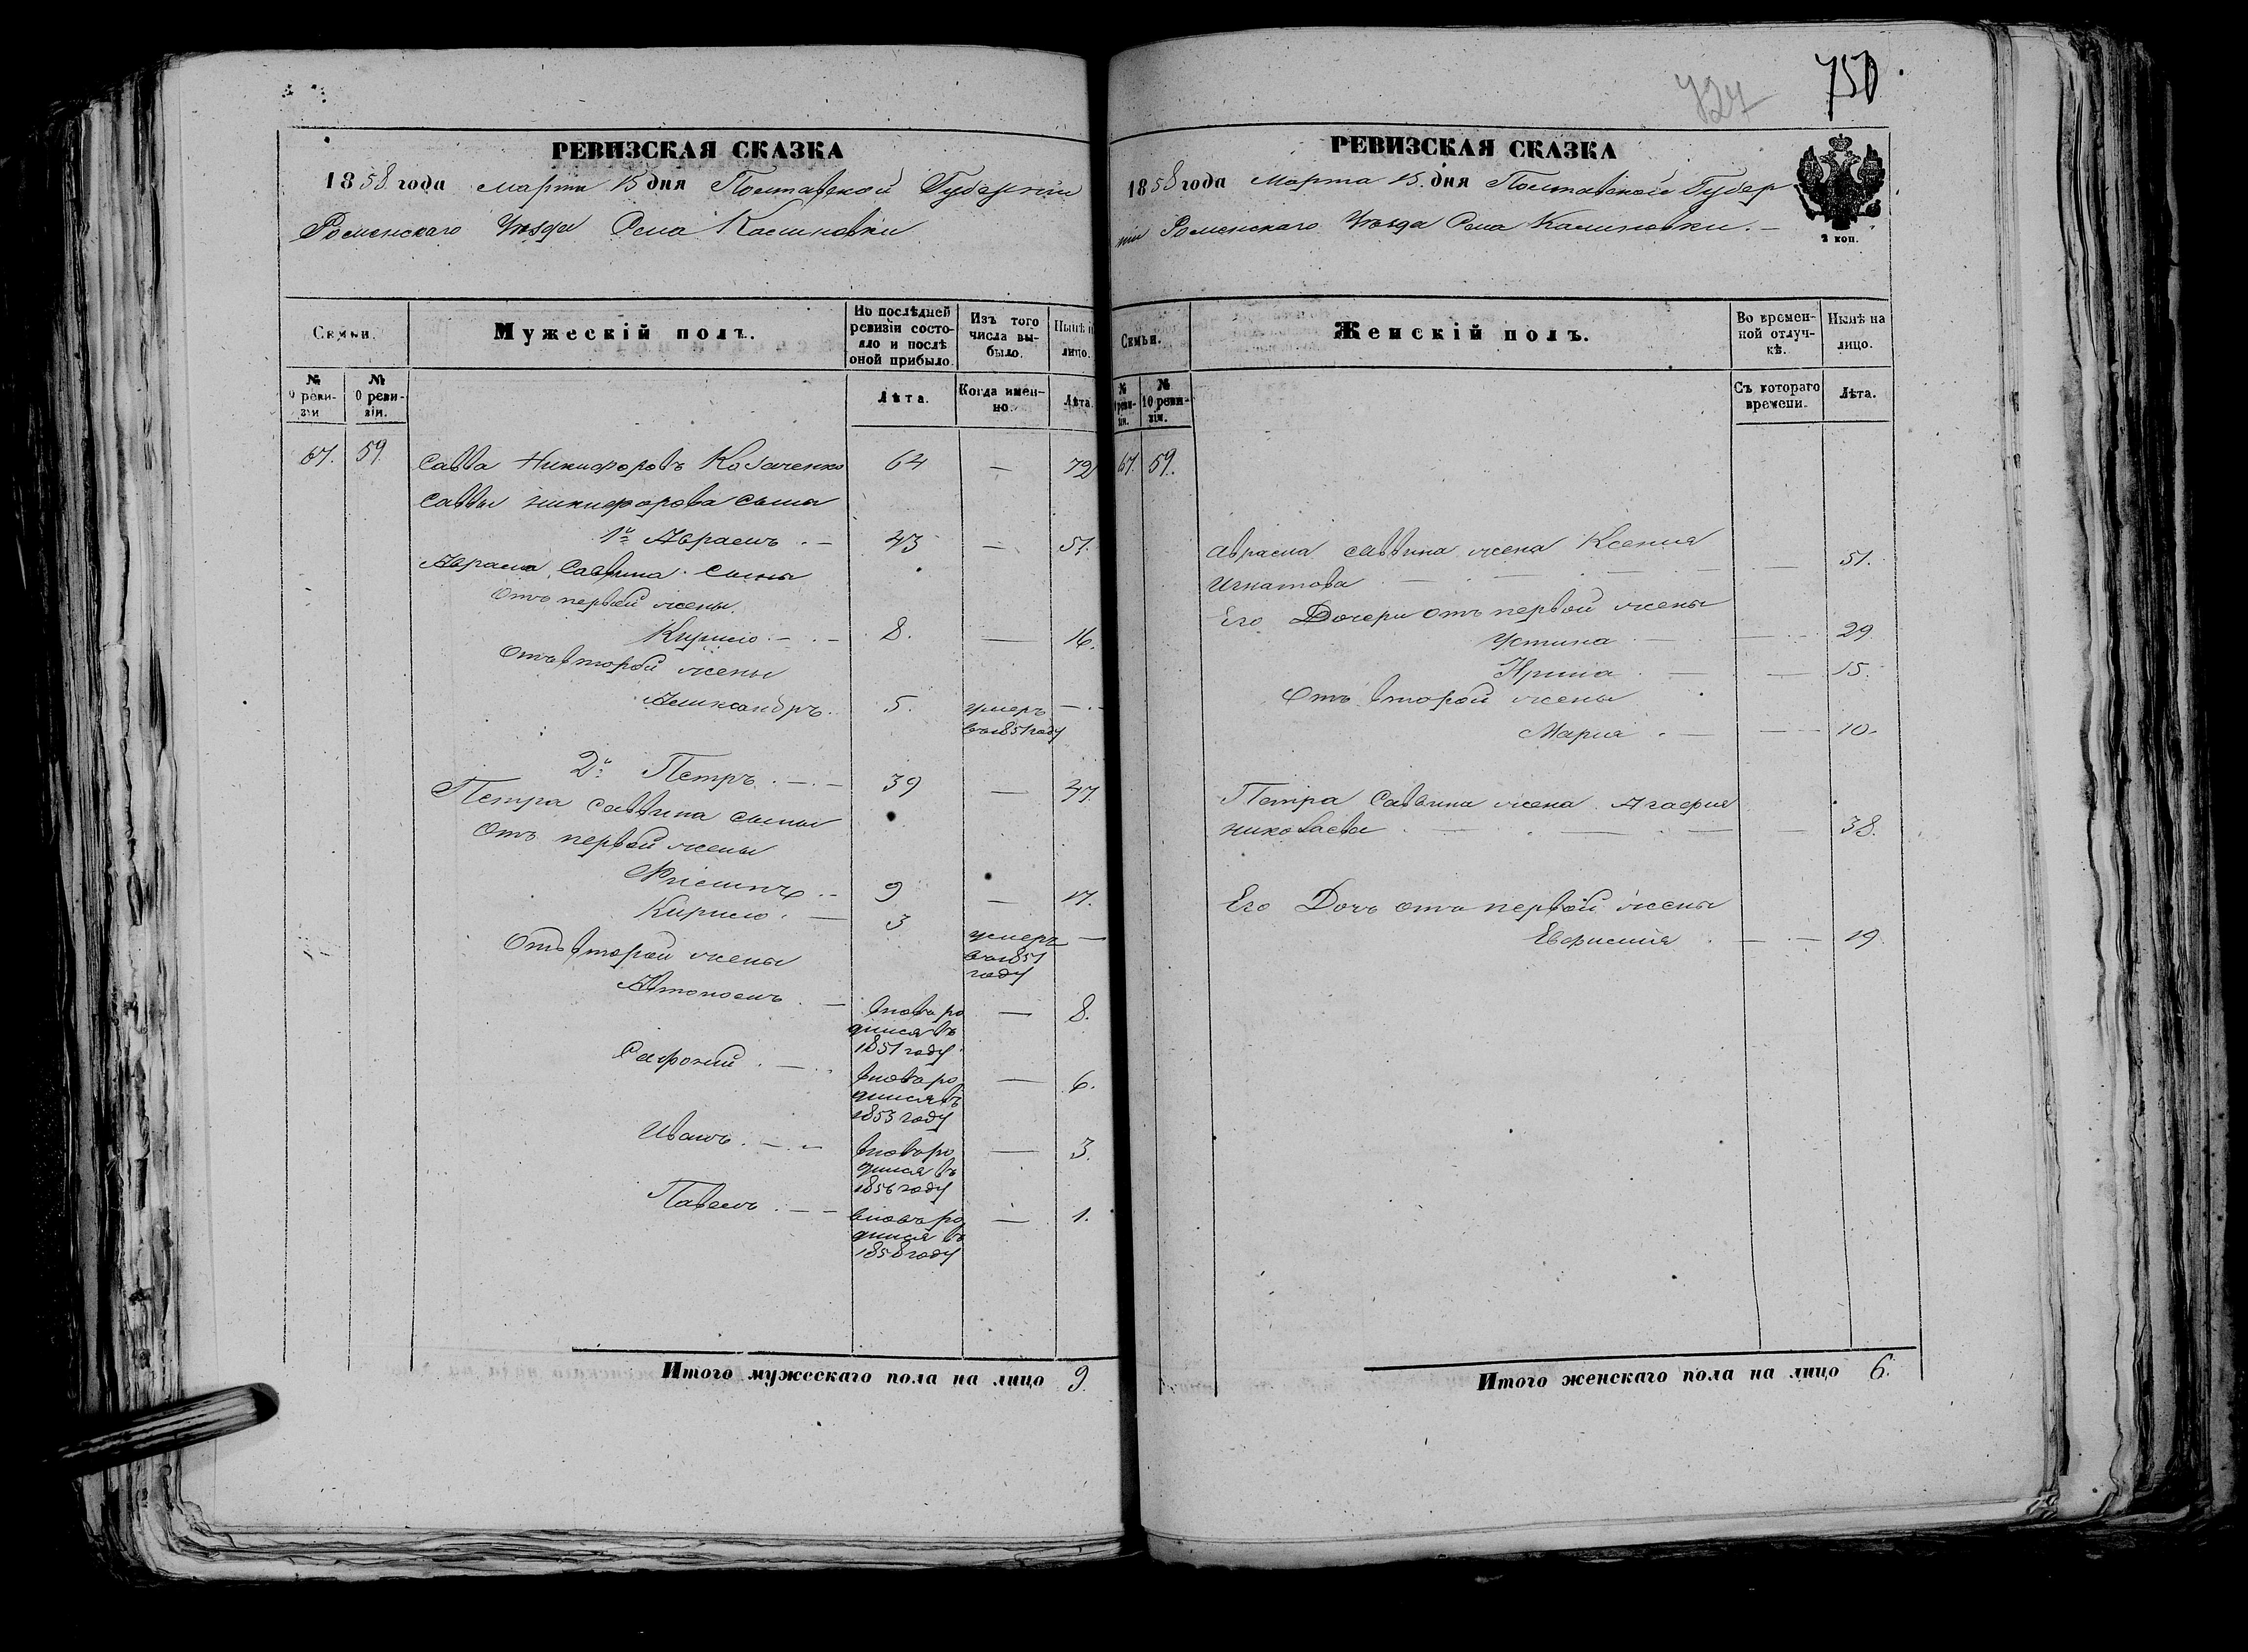 РЕВИЗСКАЯ СКАЗКА
1858 года Марта 15 дня Полтавской Губерніи
Роменскаго Уѣзда Села Калиновки
Семьи.
Мужескій полъ.
По послѣдней ревизіи состояло и послѣ оной прибыло.
Изъ того числа выбыло.
Нынѣ н лицо.
№ 9 ревизіи
№ 10 ревизіи.
Лѣта.
Когда именно.
Лѣта.
67. 59. Савва Никифоровъ Козаченко 64 — 72
Саввы Никифорова сыны
1й Авраамъ . — 43 — 51.
Авраама Саввина сыны
Отъ первой жены
Кирило . — . — 8. — 16.
Отъ второй жены
Александръ . 5. умеръ — . —
въ 1851 году
2й Петръ . — . — 39 — 47.
Петра Саввина сыны
Отъ первой жены
Филипъ . — 9 — 17.
Кирило . — 3 умеръ —
въ 1851
году
Отъ второй жены
Автономъ . — вновь ро — 8.
дился въ
1851 году
Сафоній . — . вновь ро — 6.
дился въ
1853 году
Иванъ . — . — вновь ро — 3.
дился въ
1856 году
Павелъ . — — вновь ро — 1.
дился въ
1858 году
Итого мужескаго пола на лицо 9.
727 750
РЕВИЗСКАЯ СКАЗКА
1858 года Марта 15. дня Полтавской Губер
ніи Роменскаго Уѣзда Села Калиновки. —
2 коп.
Семьи.
Женскій полъ.
Во временной отлучкѣ.
Нынѣ на лицо.
№ 9 ревизіи.
№ 10 ревизіи.
Съ котораго времени.
Лѣта.
67. 59.
Авраама Саввина жена Ксения
Игнатова . — — — — — 51.
Его Дочери отъ первой жены
Устина . — — . — 29
Ирина . — — 15.
Отъ второй жены
Мария . — — — 10.
Петра Саввина жена Агафия
Николаева . — . — — — 38.
Его Дочь отъ первой жены
Евфимия . — . — 19.
Итого женскаго пола на лицо 6.